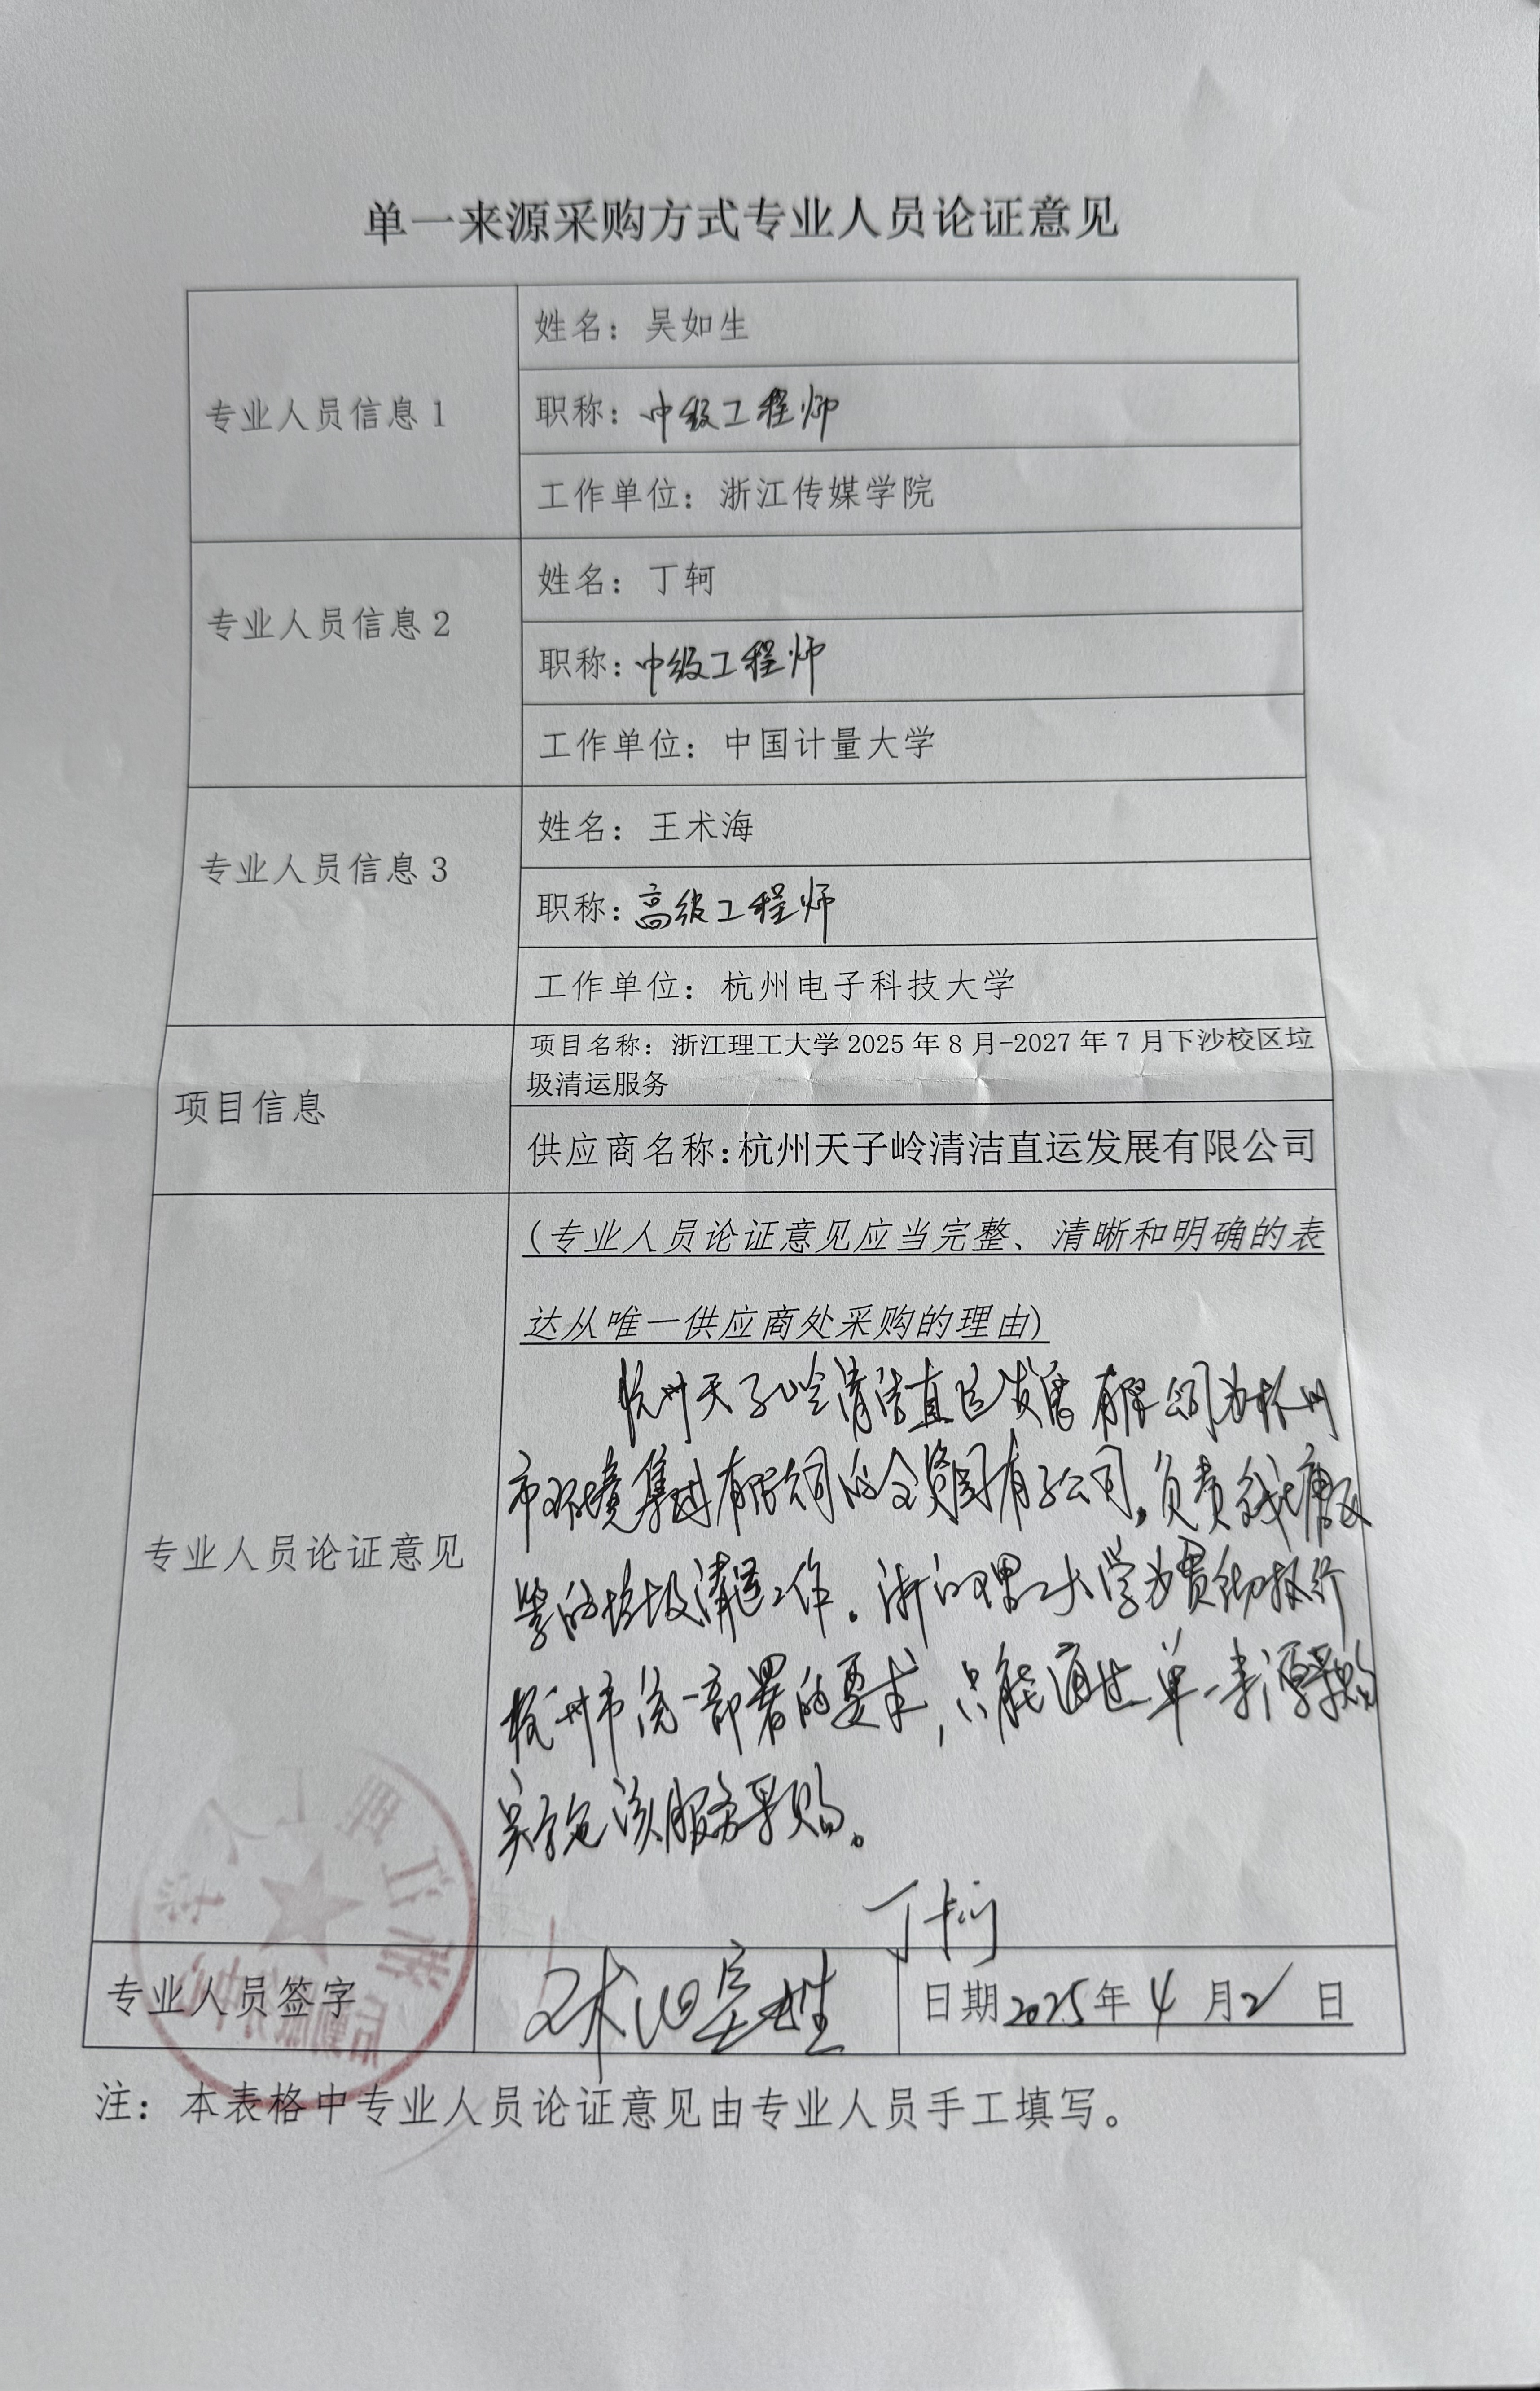 单一来源采购方式专业人员论证意见
专业人员信息1
姓名：吴如生
职称：中级工程师
工作单位：浙江传媒学院
专业人员信息2
姓名：丁轲
职称：中级工程师
工作单位：中国计量大学
专业人员信息3
姓名：王术海
职称：高级工程师
工作单位：杭州电子科技大学
项目信息
项目名称：浙江理工大学2025年8月-2027年7月下沙校区垃
圾清运服务
供应商名称：杭州天子岭清洁直运发展有限公司
专业人员论证意见
(专业人员论证意见应当完整、清晰和明确的表
达从唯一供应商处采购的理由)
杭州天子岭清洁直运发展有限公司为杭州
市环境集团有限公司的全资国有子公司，负责钱塘区
的垃圾清运工作。浙江理工大学为贯彻执行
杭州市统一部署的要求，只能通过单一来源采购
实施该服务采购。
丁轲
专业人员签字
王术海 吴如生
日期2025年4月2日
注：本表格中专业人员论证意见由专业人员手工填写。